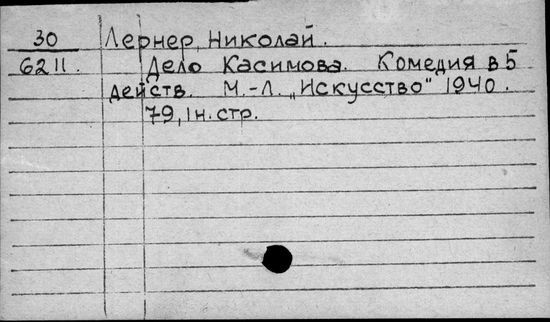 30 Лернер, Николай.
6211. Дело Касимова. Комедия в 5
действ. М.-Л. „Искусство" 1940.
79, 1 н. стр.